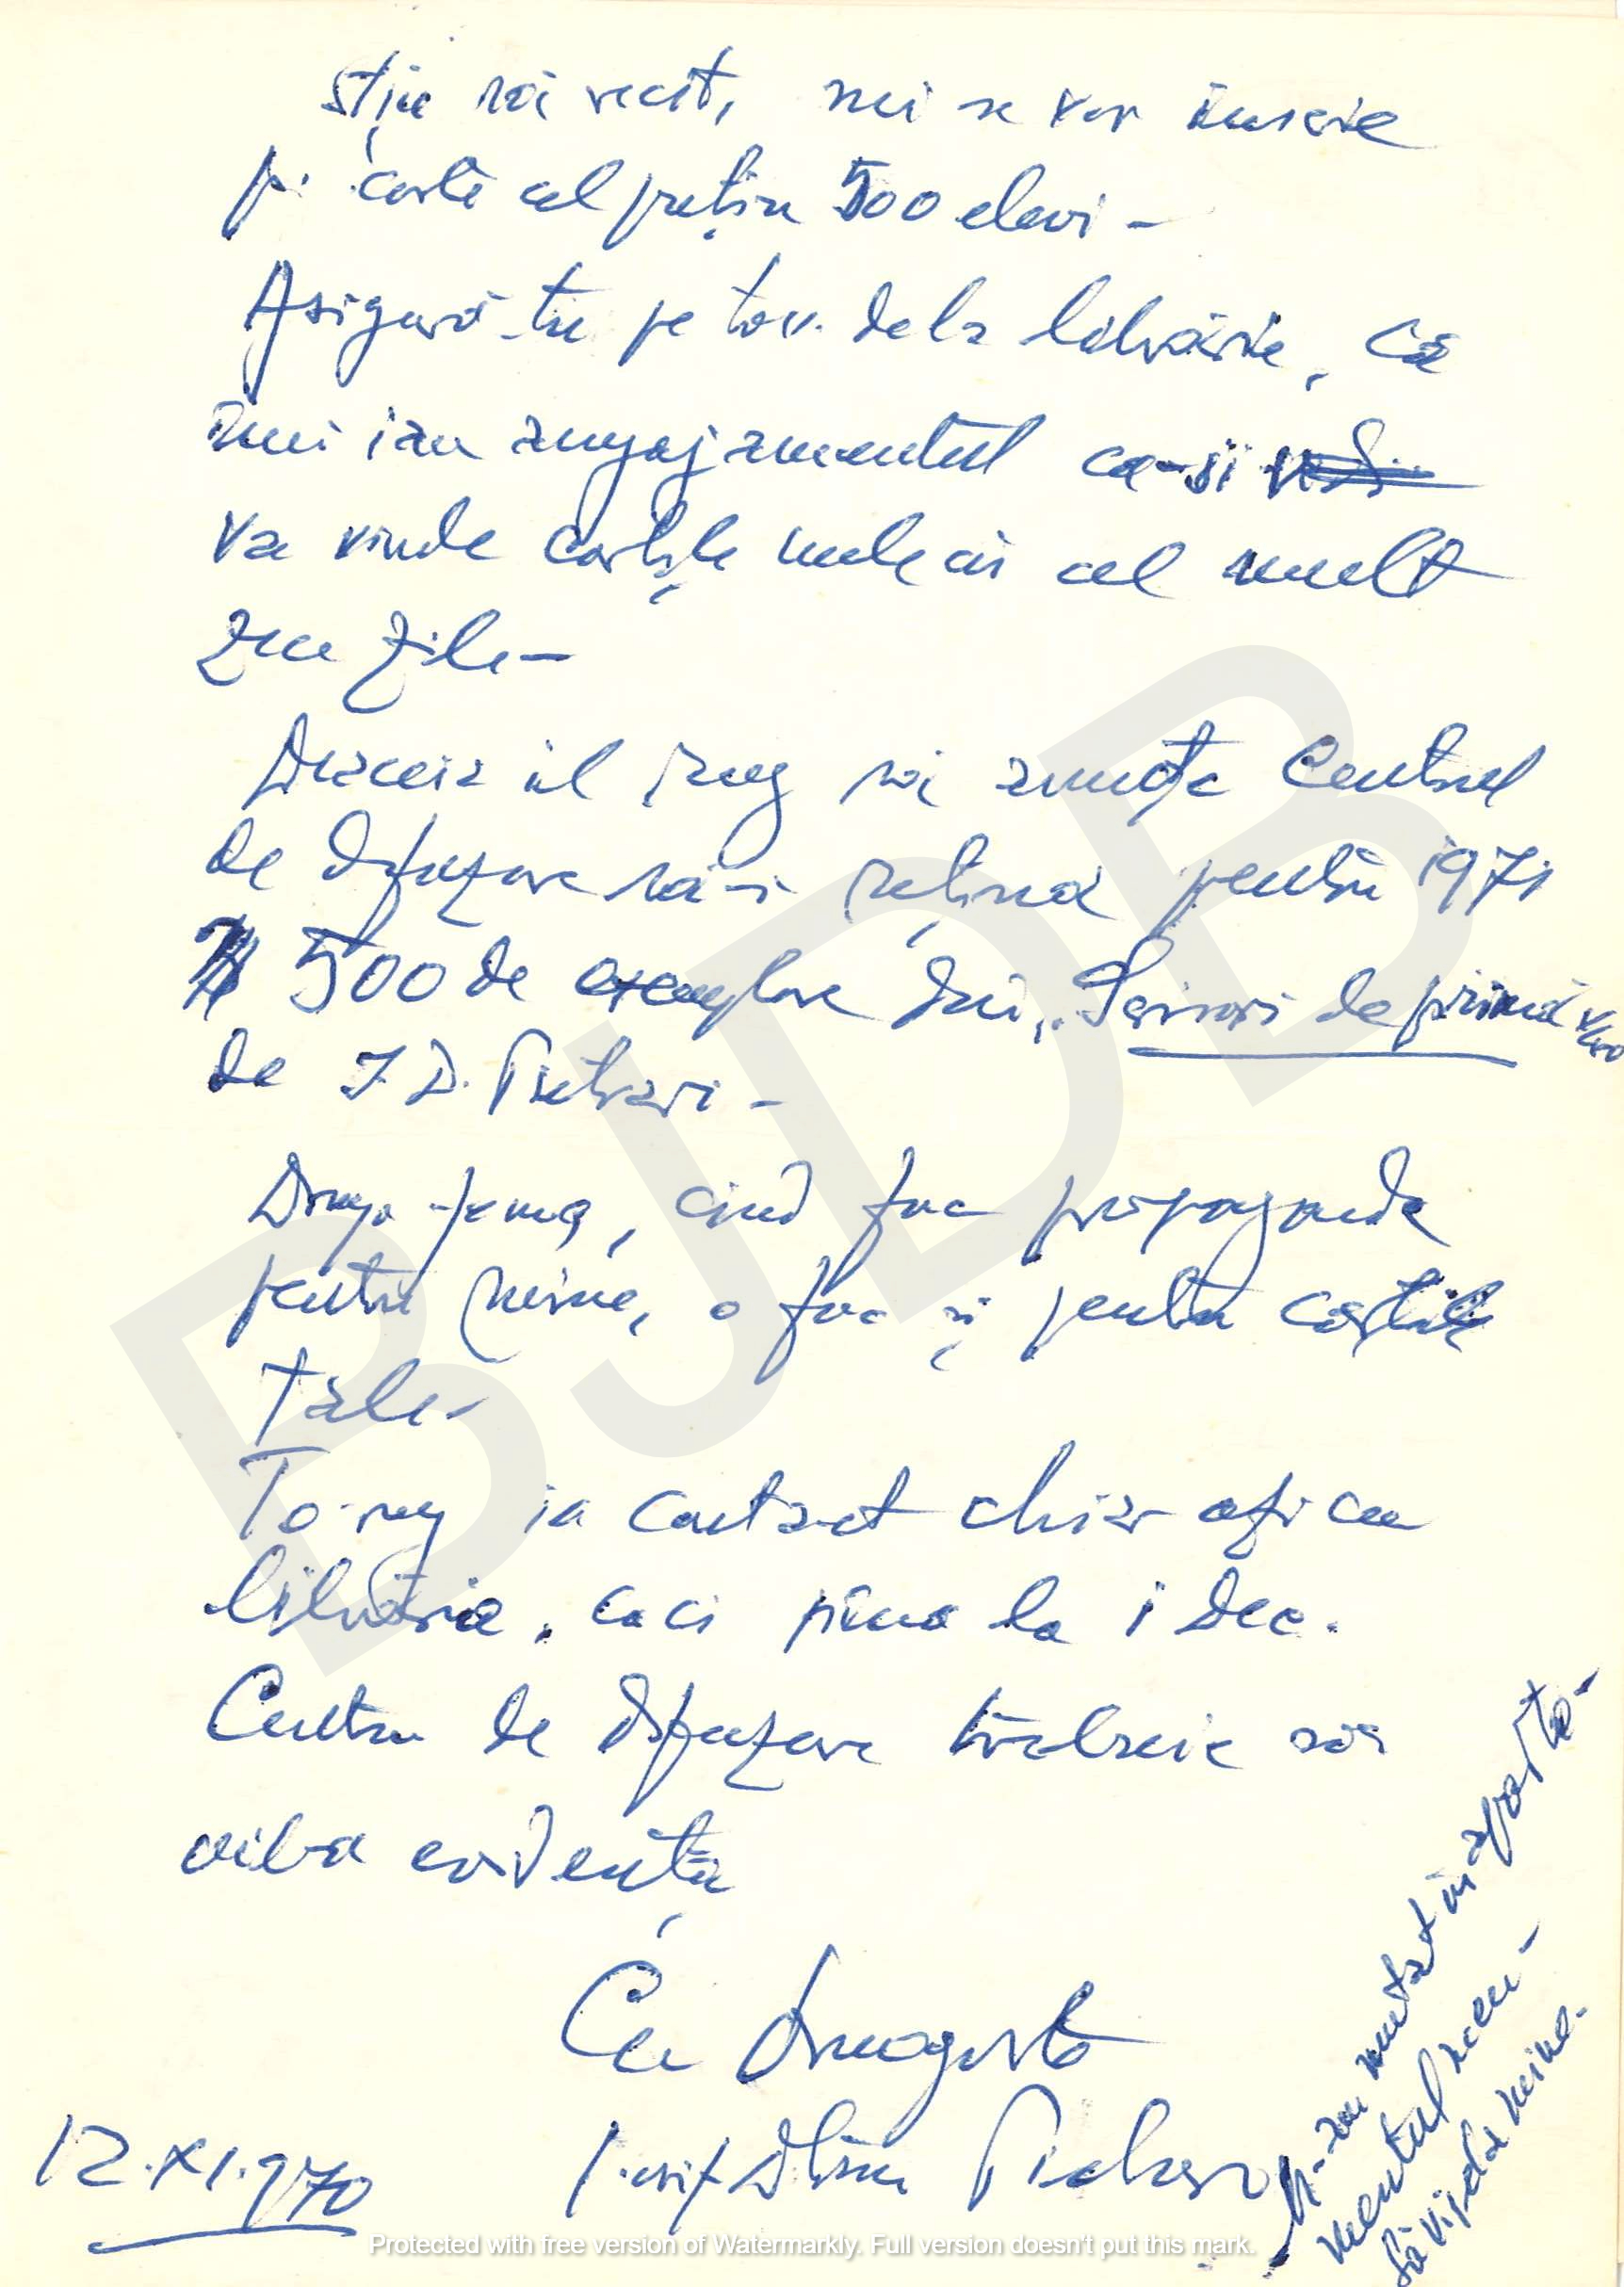 știu să recit, mi se vor înscrie
pe carte cel puțin 500 elevi –
Asigură-tu pe tov. dela librărie, că
îmi iau angajamentul ca-și
va vinde cărțile mele în cel mult
zece zile –
Deaceia îl rog să anunțe Centrul
de difuzare să-i rețină pentru 1971
500 de exemplare din „Scrisori de primăvară
de I. D. Pietrari –
Dragă , cînd fac propagandă
pentru mine, o fac și pentru cărțile
Tale –
Te rog ia contact chiar azi cu
librăria, căci pînă la 1 Dec.
Centru de difuzare trebuie să
aibă evidența
Cu dragoste
Iosif Dumitru Pietrari
12.XI.970
M-am mutat în aparta-
mentul
să vii pela mine.
BJDB
Protected with free version of Watermarkly. Full version doesn't put this mark.